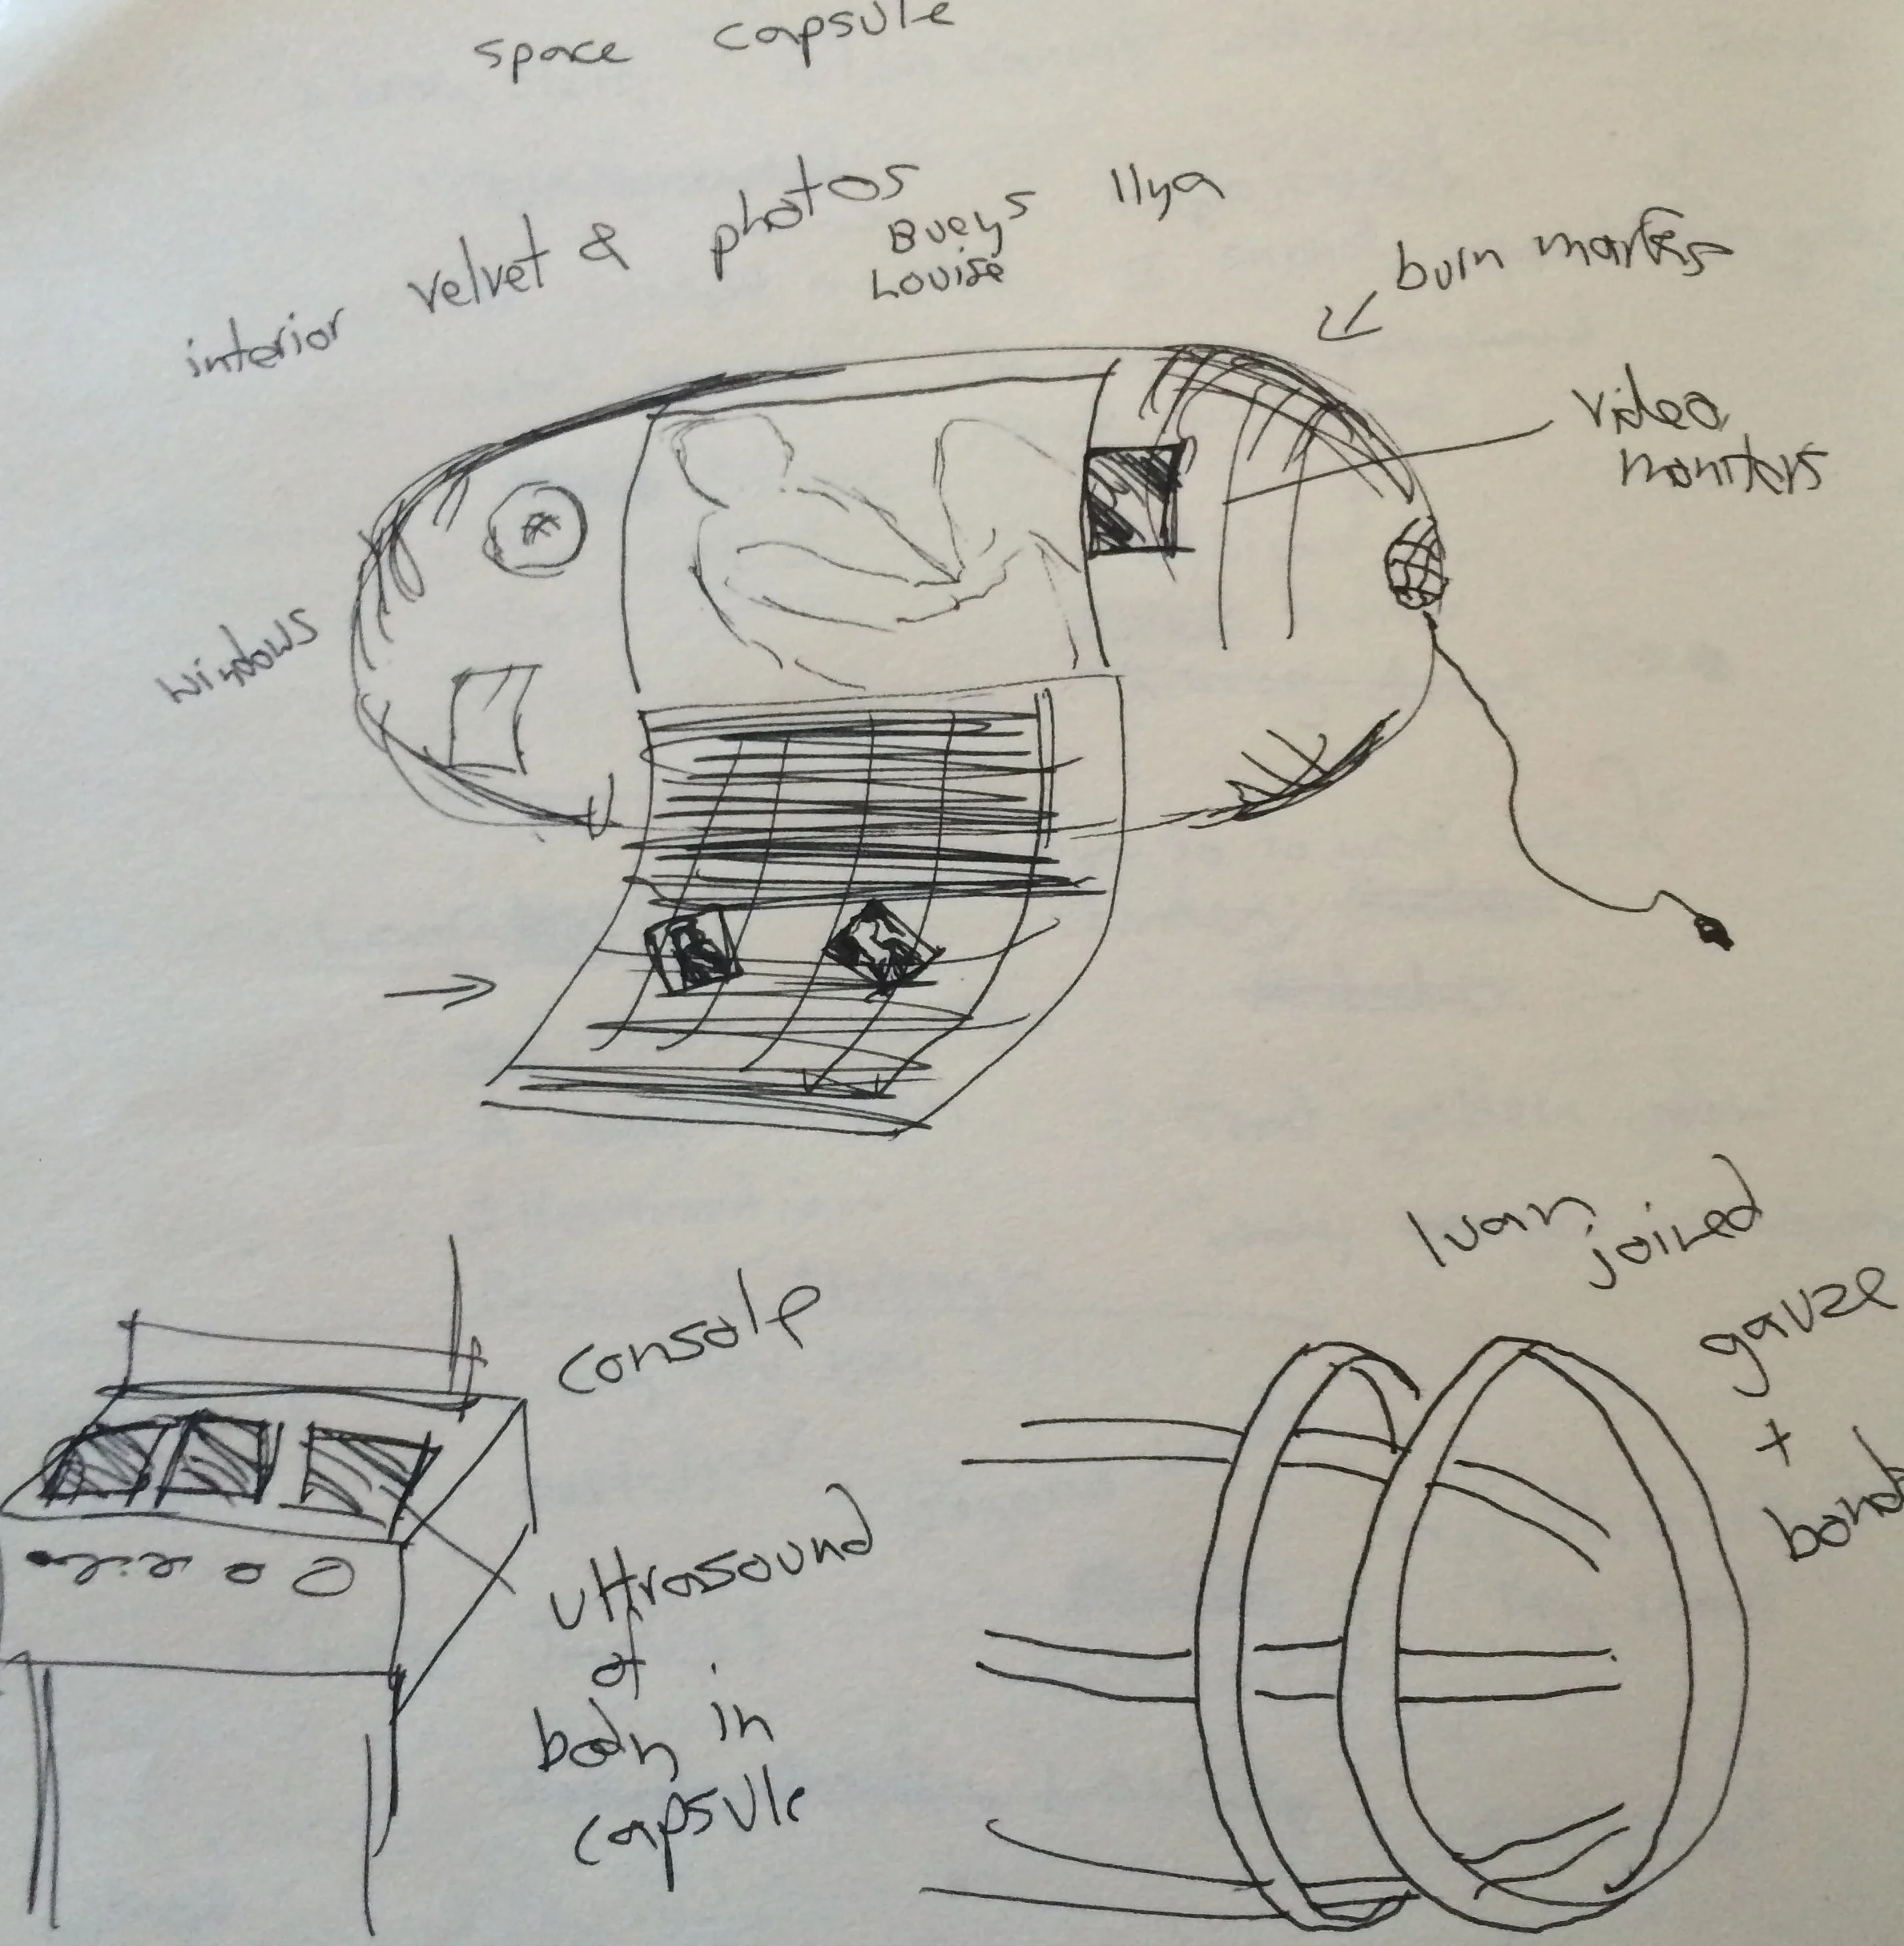 space capsule
interior velvet & photos
Bueys Ilya
Louise
burn marks
video
monitors
windows
console
ultrasound
of
body in
capsule
luan
joined
gauze
+
bond